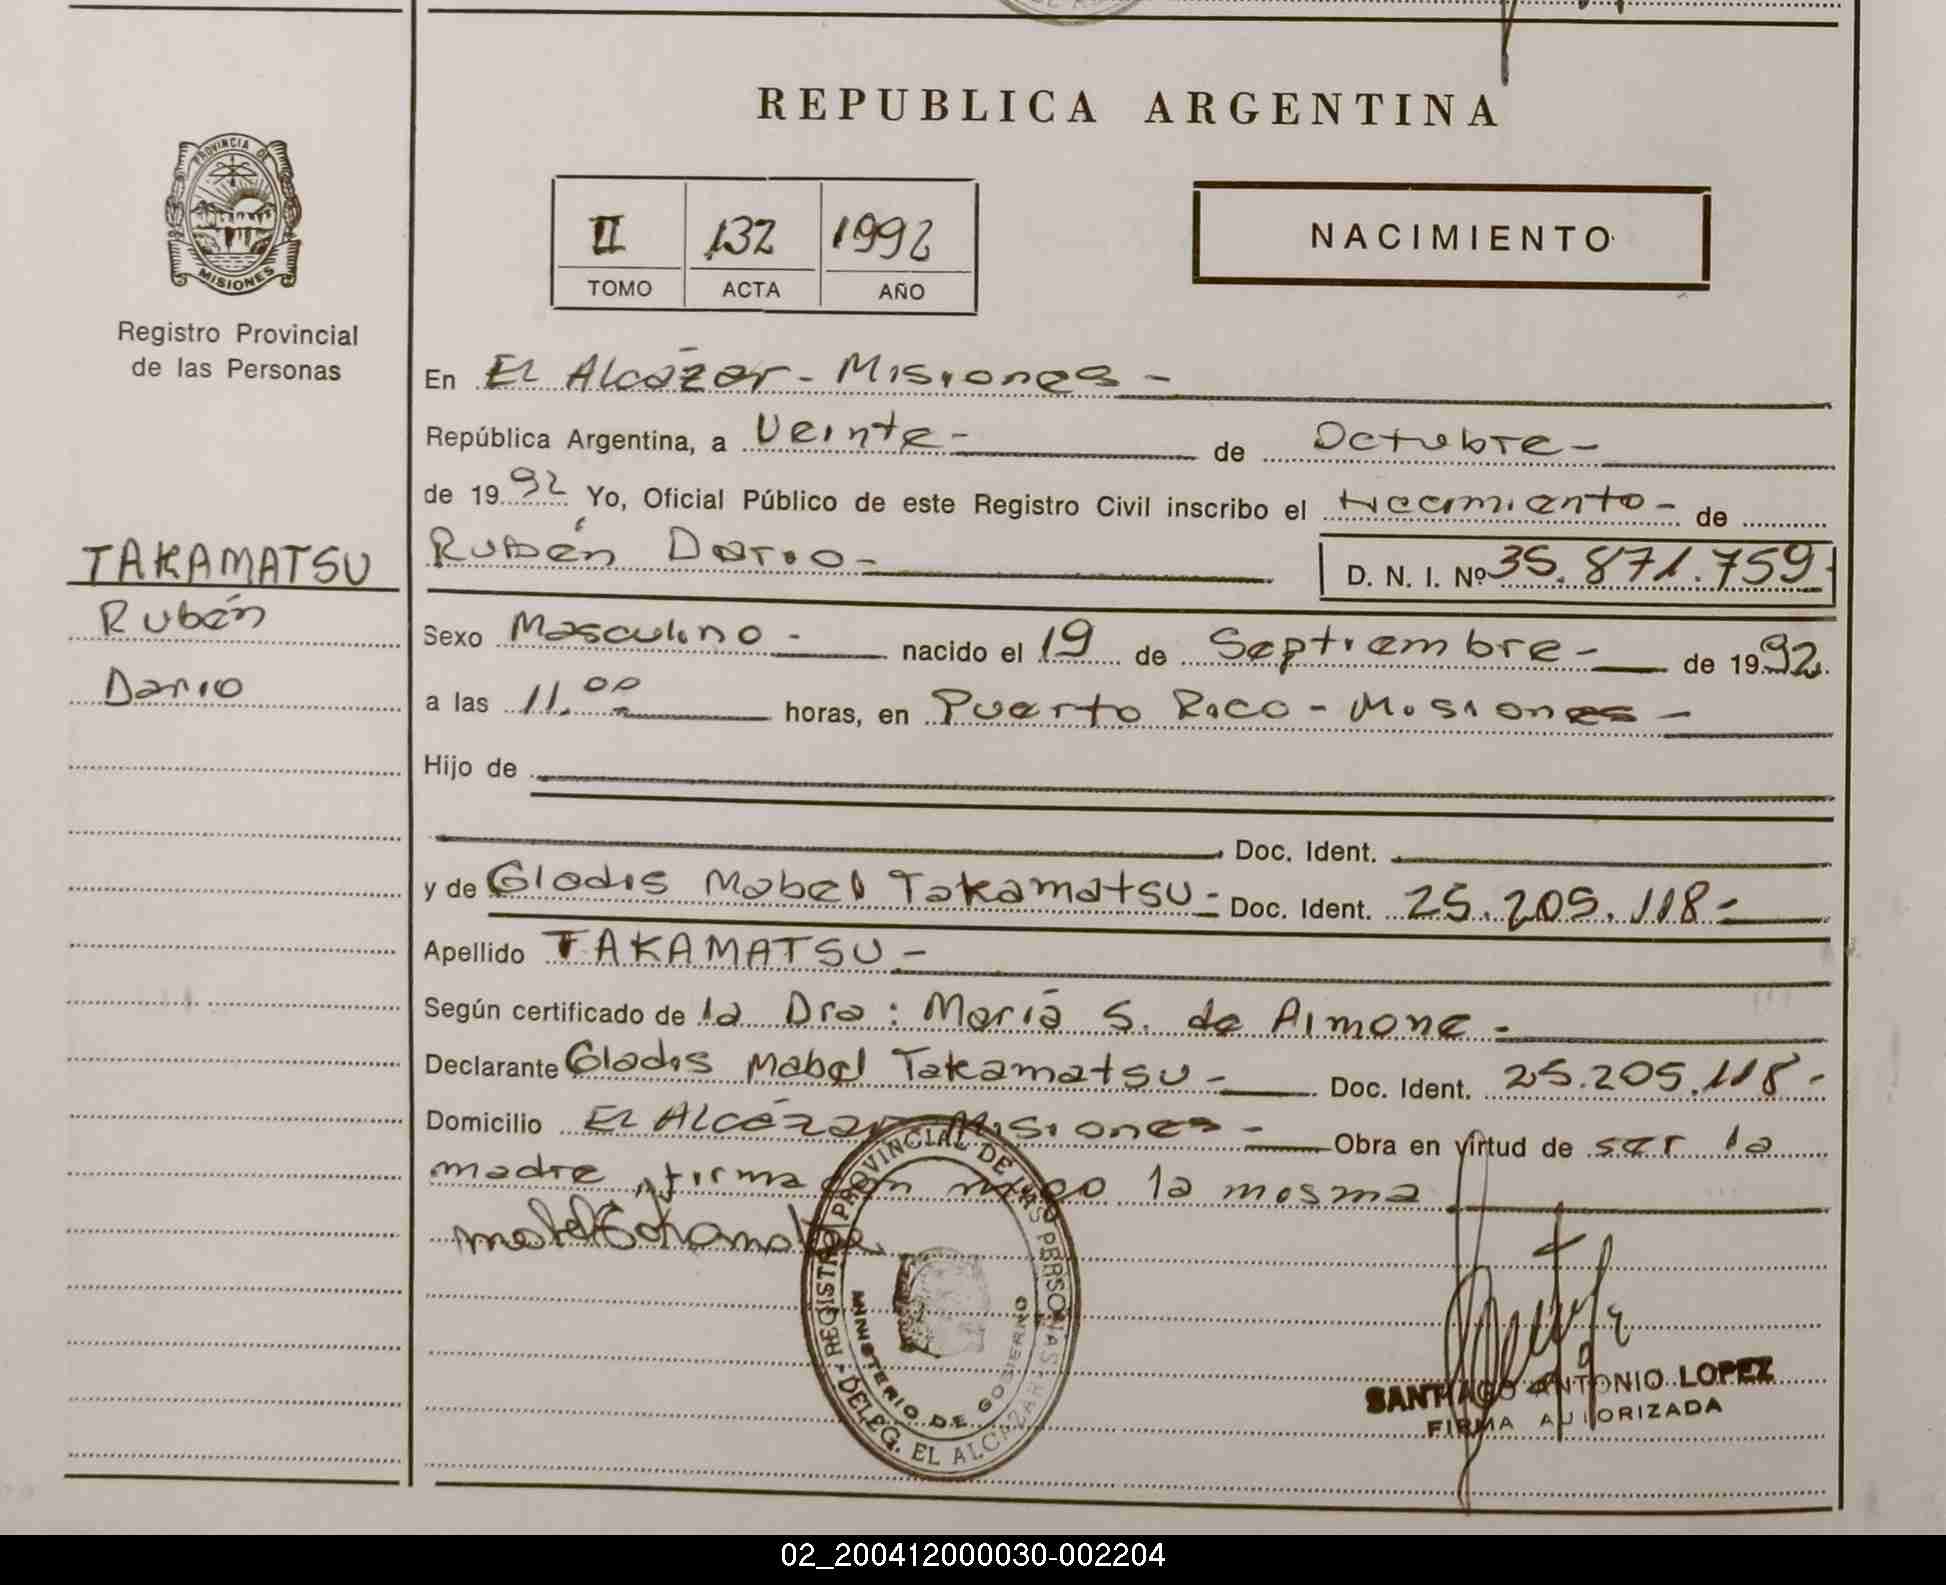 REPUBLICA ARGENTINA
PROVINCIA DE
MISIONES
Registro Provincial
de las Personas
II 132 1992
TOMO ACTA AÑO
NACIMIENTO
TAKAMATSU
Rubén
Dario
En El Alcázar - Misiones -
República Argentina, a Veinte - de Octubre -
de 1992 Yo, Oficial Público de este Registro Civil inscribo el Nacimiento - de
Rubén Dario - D. N. I. Nº 35.871.759
Sexo Masculino - nacido el 19 de Septiembre - de 1992.
a las 11.00 horas, en Puerto Rico - Misiones -
Hijo de
Doc. Ident.
y de Gladis Mabel Takamatsu - Doc. Ident. 25.205.118 -
Apellido TAKAMATSU -
Según certificado de la Dra: María S. de Aimone -
Declarante Gladis Mabel Takamatsu - Doc. Ident. 25.205.118 -
Domicilio El Alcázar Misiones - Obra en virtud de ser la
madre, firma con migo la mosma
REGISTRO PROVINCIAL DE LAS PERSONAS
MINISTERIO DE GOBIERNO
DELEG. EL ALCAZAR
SANTIAGO ANTONIO LOPEZ
FIRMA AUTORIZADA
02_200412000030-002204